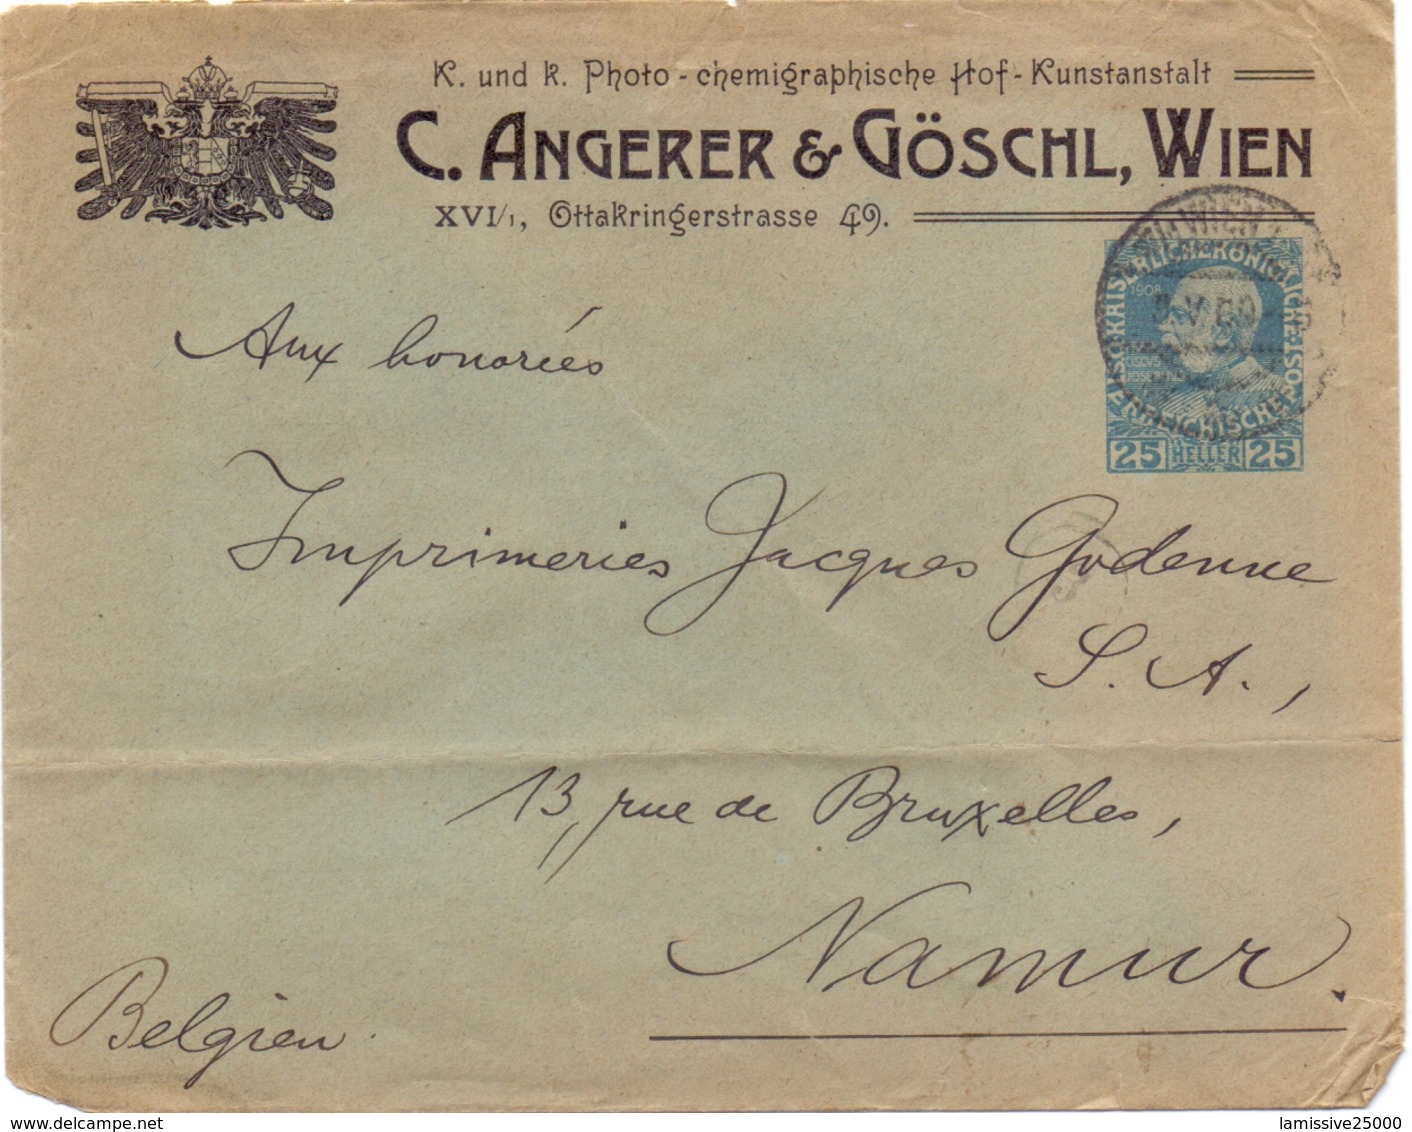 K. und k. Photo-chemigraphische Hof-Kunstanstalt
C. ANGERER & GÖSCHL, WIEN
XVI/1, Ottakringerstrasse 49.
WIEN
KAISERLICHE KÖNIGLICHE ÖSTERREICHISCHE POST
1908
25 HELLER 25
Aux honorées
Imprimeries Jacques Godenne
S. A.,
13, rue de Bruxelles,
Namur.
Belgien
www.delcampe.net
lamissive25000